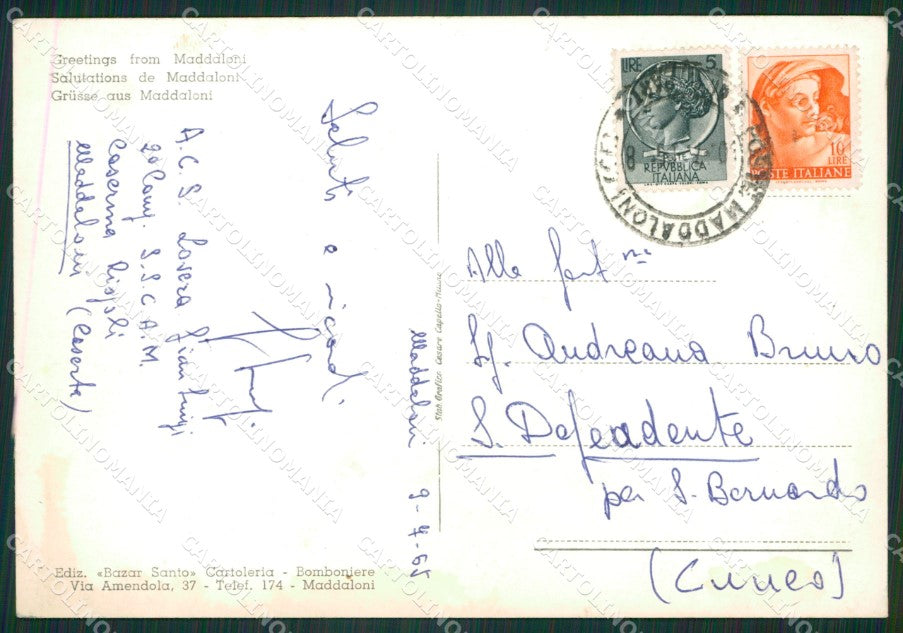 Greetings from Maddaloni
Salutations de Maddaloni
Grüsse aus Maddaloni
Saluti e ricordi.
A.C.S. Lovera Gian Luigi
2a Comp. S.S.C.A.M.
Caserma Rispoli
Maddaloni (Caserta)
Maddaloni 9-4-65
Ediz. «Bazar Santo» Cartoleria - Bomboniere
Via Amendola, 37 - Telef. 174 - Maddaloni
Stab. Grafico Cesare Capello - Milano
LIRE 5
REPVBBLICA
ITALIANA
10
LIRE
POSTE ITALIANE
MADDALONI
Alla fam.
Sg. Andreana Bruno
S. Defendente
per S. Bernardo
(Cuneo)
CARTOLINOMANIA